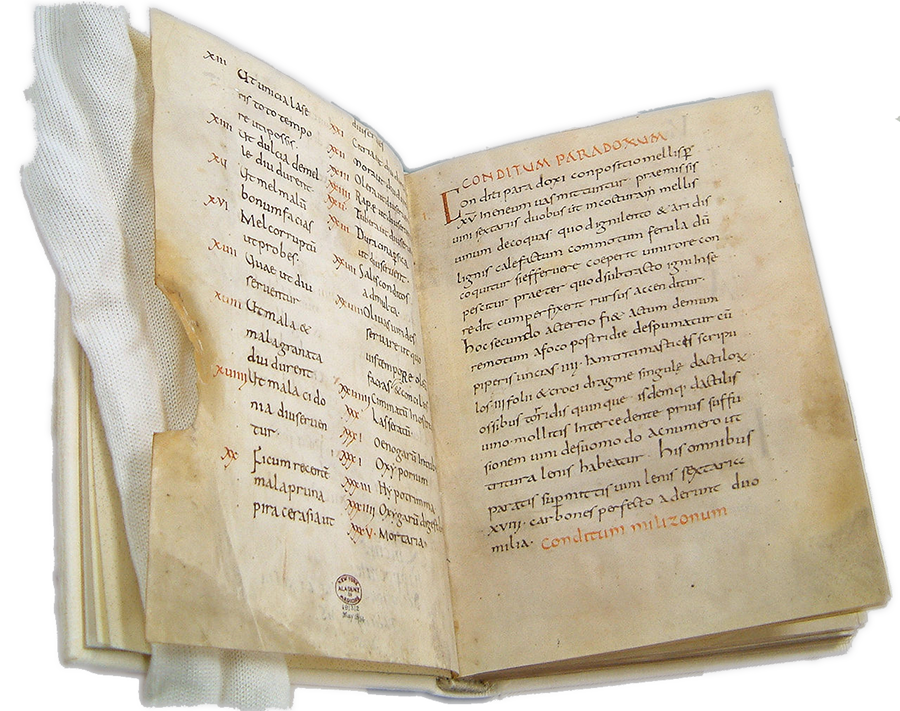 XIII Ut uncia lase
ris toto tempo
re uti possis.
XIIII Ut dulcia de mel
le diu durent
XV Ut mel malū
bonum facias
XVI Mel corruptū
ut probes.
XVII Quae ut diu
serventur
XVIII Ut mala &
mala granata
diu durent
XVIIII Ut mala cido
nia diu serven
tur.
XX Ficum recentē
mala pruna
pira cerasia ut
XXI diu
XXII
XXIII Olera ut diu
XXIIII Rape ut diu
XXV
XXVI Duriona
ut diu serventur.
XXVII Sales conditos
ad multa.
XXVIII Olivas virides
servare ut quo
vis tempore ole
XXVIIII Cimmatū in ostre
XXX Laseratū.
XXXI Oenogarū in tube
XXXII Oxyporium
XXXIII Hypotrimma.
XXXIIII Oxygarū diges
XXXV Mortaria.
NEW YORK
ACADEMY
OF
MEDICINE
3
CONDITUM PARADOXUM
I. Conditi paradoxi conpositio mellis p̄
XV. In eneum vas mittuntur praemissis
vini sextariis duobus ut in coctura mellis
vinum decoquas quod igni lento & aridis
lignis calefactum commotum ferula dū
coquitur si effervere coeperit vini rore con
pescitur praeter quod subtracto igni in se
redit cum perfrixerit rursus accenditur
hoc secundo ac tertio fi& ac tum demum
remotum a foco postridie despumatur cū
piperis uncias IIII. iam triti masticis scripu
los III folii & croci dragme singule dactilo
ossibus torridis quinque isdemq. dactilis
vino mollitis intercedente prius suffu
sionem vini de suo modo ac numero ut
tritura lenis habeatur. his omnibus
paratis supmittis vini lenis sextaria
XVIII. carbones perfecto aderunt duo
milia. Conditum milizonum